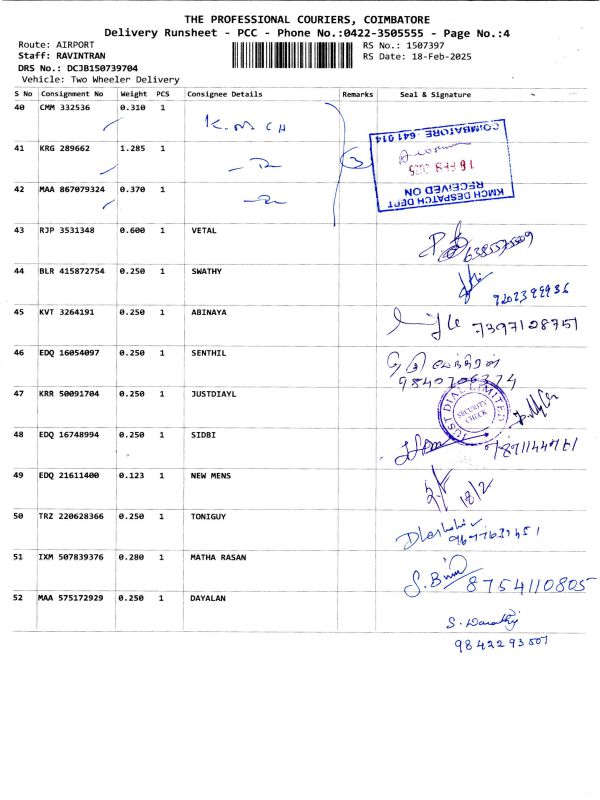 THE PROFESSIONAL COURIERS, COIMBATORE
Delivery Runsheet - PCC - Phone No.:0422-3505555 - Page No.:4
Route: AIRPORT RS No.: 1507397
Staff: RAVINTRAN RS Date: 18-Feb-2025
DRS No.: DCJB150739704
Vehicle: Two Wheeler Delivery
S No Consignment No Weight PCS Consignee Details Remarks Seal & Signature
40 CMM 332536 0.310 1 K.M.C.H
COIMBATORE - 641 014
41 KRG 289662 1.285 1 3
42 MAA 867079324 0.370 1
RECEIVED ON
KMCH DESPATCH DEPT
43 RJP 3531348 0.600 1 VETAL
44 BLR 415872754 0.250 1 SWATHY
45 KVT 3264191 0.250 1 ABINAYA 7397108751
46 EDQ 16054097 0.250 1 SENTHIL
47 KRR 50091704 0.250 1 JUSTDIAYL
JUST DIAL LIMITED
SECURITY CHECK
48 EDQ 16748994 0.250 1 SIDBI
49 EDQ 21611400 0.123 1 NEW MENS 18/2
50 TRZ 220628366 0.250 1 TONIGUY
51 IXM 507839376 0.280 1 MATHA RASAN 8754110805
52 MAA 575172929 0.250 1 DAYALAN
9842293507